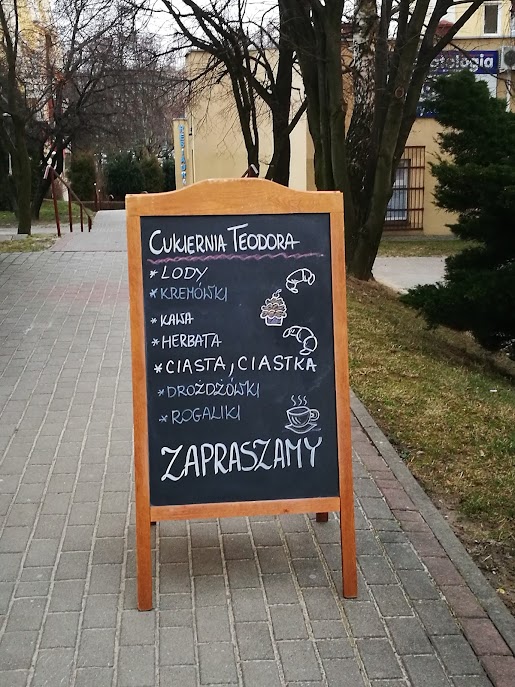 CUKIERNIA TEODORA
* LODY
* KREMÓWKI
* KAWA
* HERBATA
* CIASTA, CIASTKA
* DROŻDŻÓWKI
* ROGALIKI
ZAPRASZAMY